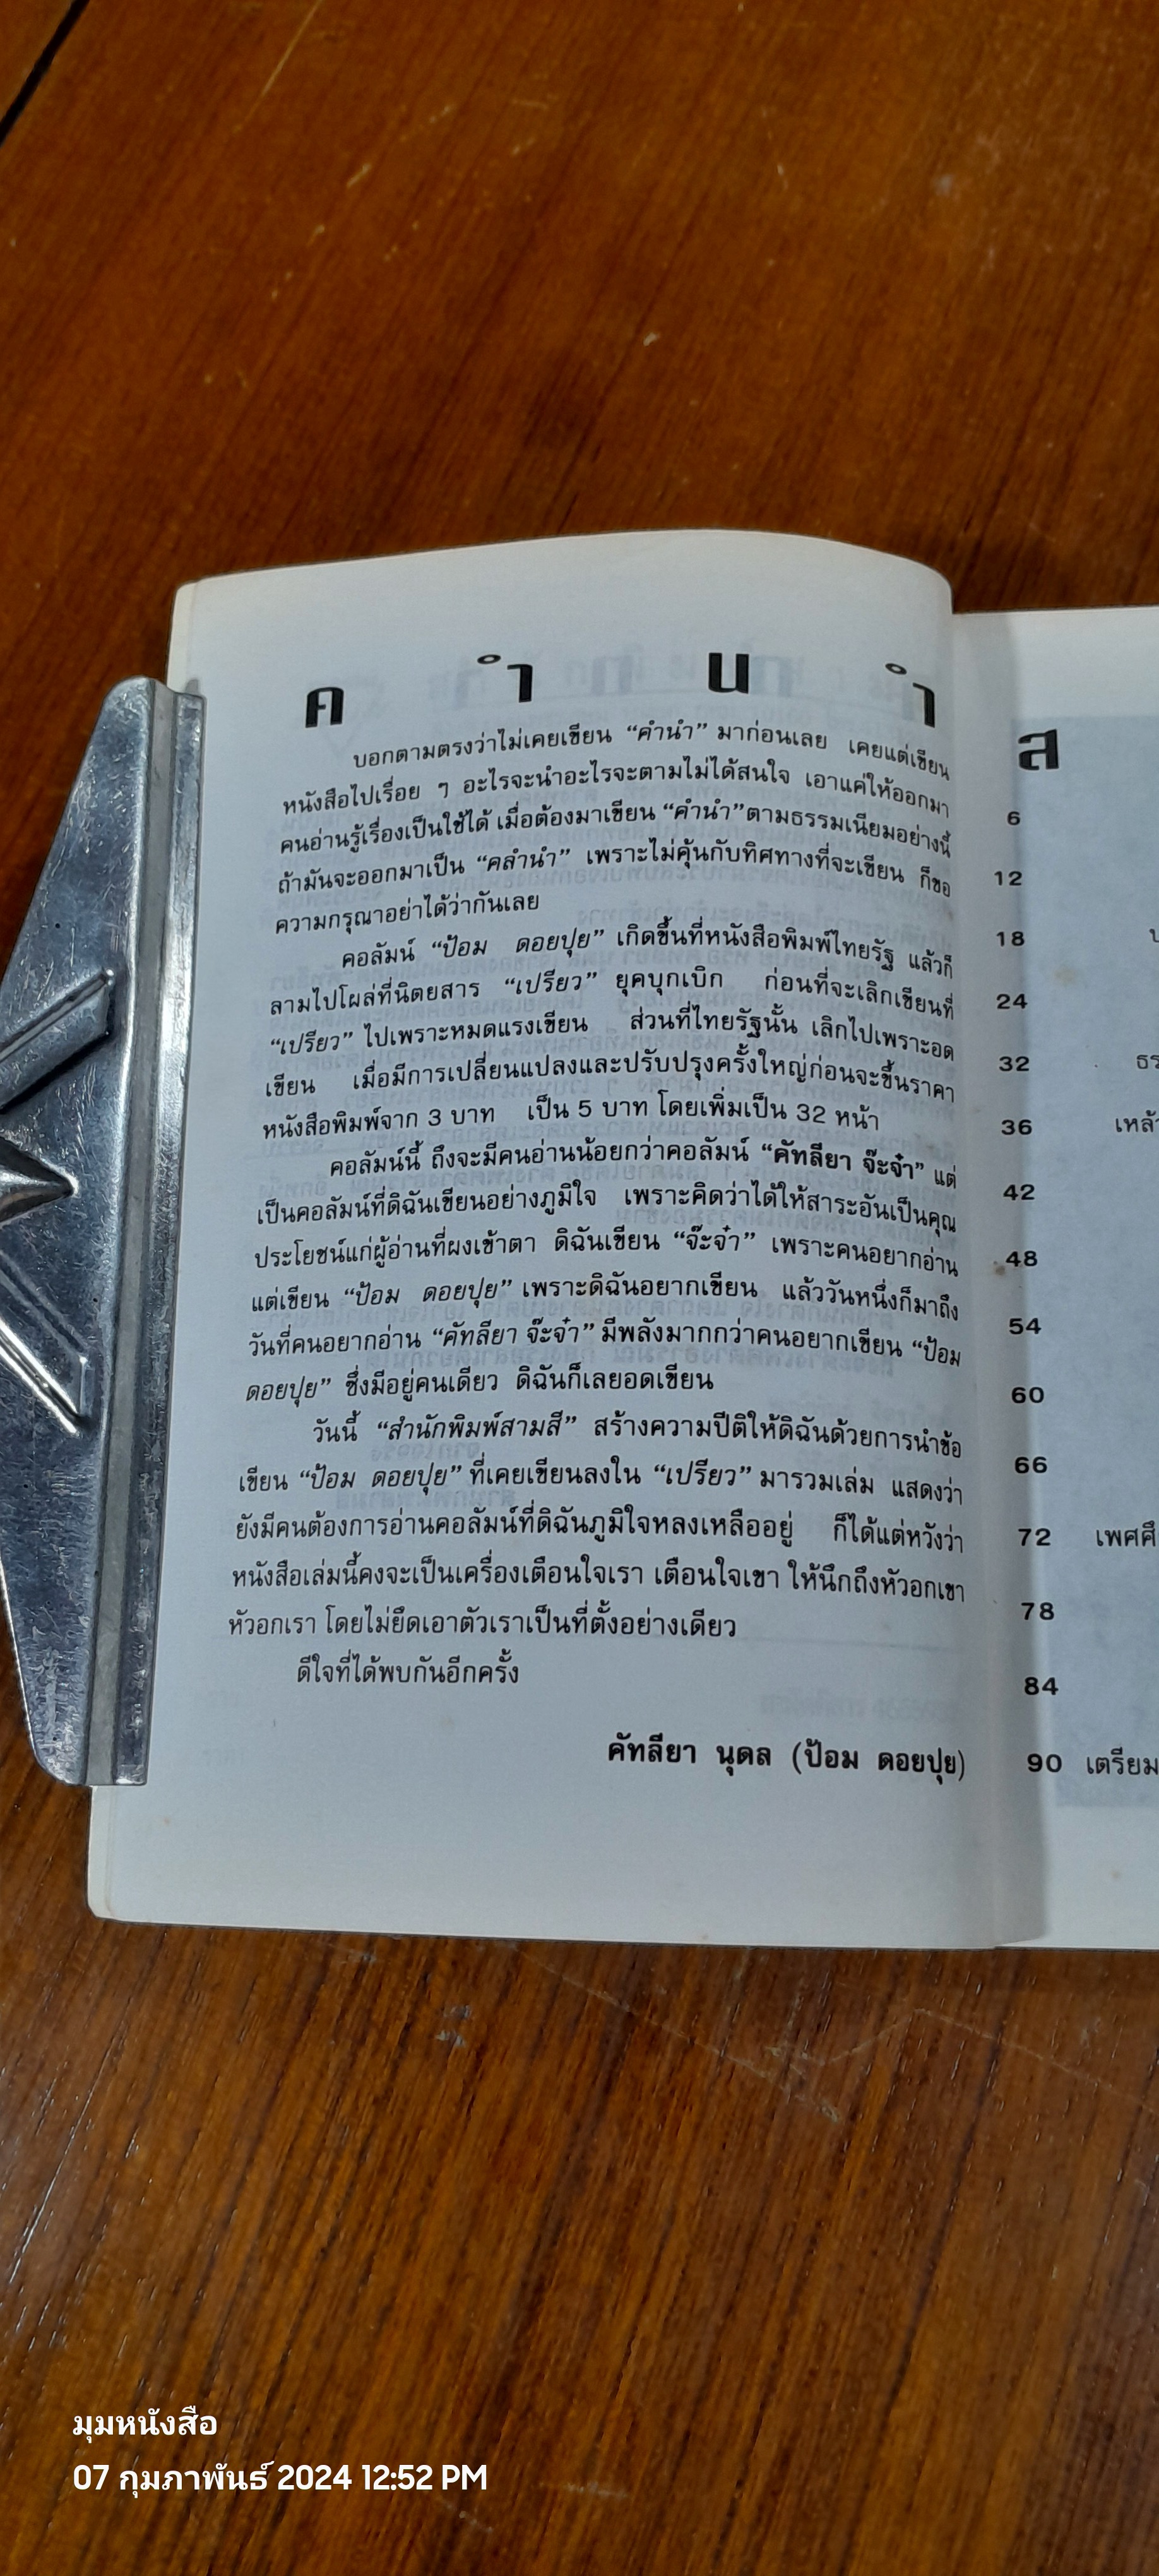 คำนำ
บอกตามตรงว่าไม่เคยเขียน “คำนำ” มาก่อนเลย เคยแต่เขียน
หนังสือไปเรื่อย ๆ อะไรจะนำอะไรจะตามไม่ได้สนใจ เอาแค่ให้ออกมา
คนอ่านรู้เรื่องเป็นใช้ได้ เมื่อต้องมาเขียน “คำนำ” ตามธรรมเนียมอย่างนี้
ถ้ามันจะออกมาเป็น “คลำนำ” เพราะไม่คุ้นกับทิศทางที่จะเขียน ก็ขอ
ความกรุณาอย่าได้ว่ากันเลย
คอลัมน์ “ป้อม ดอยปุย” เกิดขึ้นที่หนังสือพิมพ์ไทยรัฐ แล้วก็
ลามไปโผล่ที่นิตยสาร “เปรียว” ยุคบุกเบิก ก่อนที่จะเลิกเขียนที่
“เปรียว” ไปเพราะหมดแรงเขียน ส่วนที่ไทยรัฐนั้น เลิกไปเพราะอด
เขียน เมื่อมีการเปลี่ยนแปลงและปรับปรุงครั้งใหญ่ก่อนจะขึ้นราคา
หนังสือพิมพ์จาก 3 บาท เป็น 5 บาท โดยเพิ่มเป็น 32 หน้า
คอลัมน์นี้ ถึงจะมีคนอ่านน้อยกว่าคอลัมน์ “คัทลียา จ๊ะจ๋า” แต่
เป็นคอลัมน์ที่ดิฉันเขียนอย่างภูมิใจ เพราะคิดว่าได้ให้สาระอันเป็นคุณ
ประโยชน์แก่ผู้อ่านที่ผงเข้าตา ดิฉันเขียน “จ๊ะจ๋า” เพราะคนอยากอ่าน
แต่เขียน “ป้อม ดอยปุย” เพราะดิฉันอยากเขียน แล้ววันหนึ่งก็มาถึง
วันที่คนอยากอ่าน “คัทลียา จ๊ะจ๋า” มีพลังมากกว่าคนอยากเขียน “ป้อม
ดอยปุย” ซึ่งมีอยู่คนเดียว ดิฉันก็เลยอดเขียน
วันนี้ “สำนักพิมพ์สามสี” สร้างความปีติให้ดิฉันด้วยการนำข้อ
เขียน “ป้อม ดอยปุย” ที่เคยเขียนลงใน “เปรียว” มารวมเล่ม แสดงว่า
ยังมีคนต้องการอ่านคอลัมน์ที่ดิฉันภูมิใจหลงเหลืออยู่ ก็ได้แต่หวังว่า
หนังสือเล่มนี้คงจะเป็นเครื่องเตือนใจเรา เตือนใจเขา ให้นึกถึงหัวอกเขา
หัวอกเรา โดยไม่ยึดเอาตัวเราเป็นที่ตั้งอย่างเดียว
ดีใจที่ได้พบกันอีกครั้ง
คัทลียา นุดล (ป้อม ดอยปุย)
ส
6
12
18
24
32 ธร
36 เหล้
42
48
54
60
66
72 เพศศึ
78
84
90 เตรียม
มุมหนังสือ
07 กุมภาพันธ์ 2024 12:52 PM